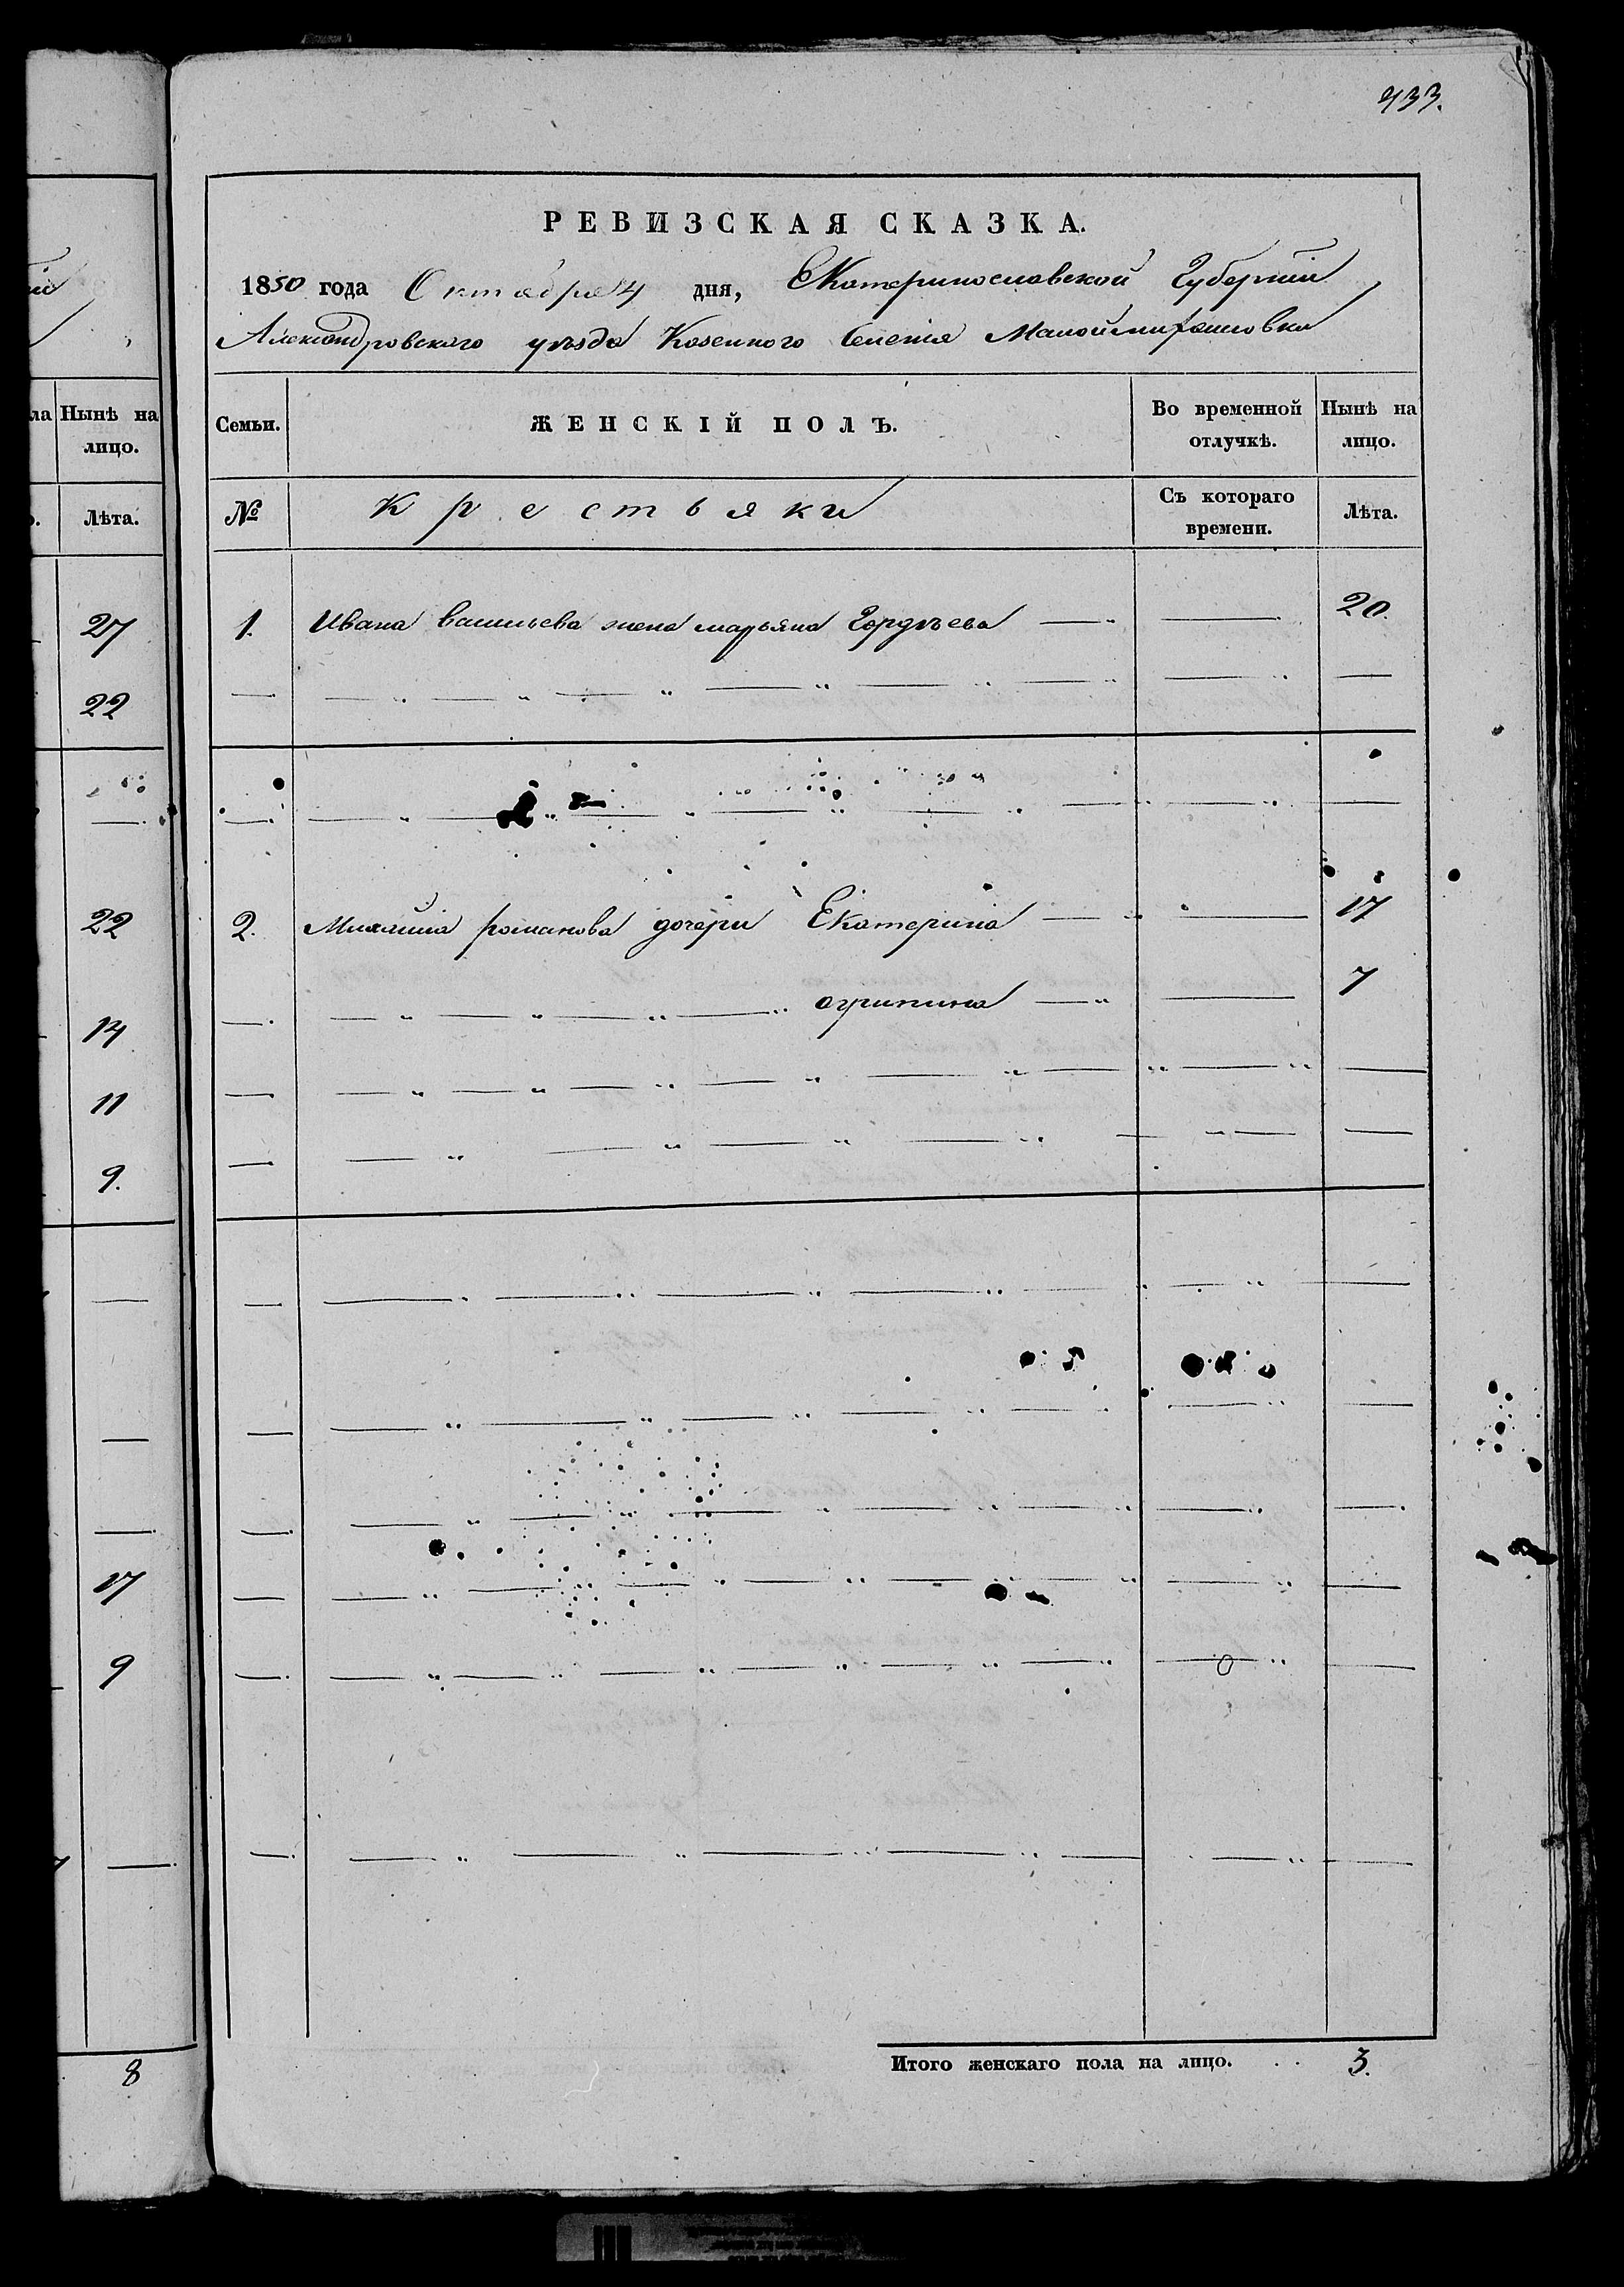 433.
РЕВИЗСКАЯ СКАЗКА.
1850 года Октября 4 дня, Екатеринославской Губернии
Александровского уѣзда Козенного Селенія
ла Нынѣ на лицо.
Лѣта.
27
22
22
14
11
9.
17
9
8
Семьи. ЖЕНСКІЙ ПОЛЪ. Во временной отлучкѣ. Нынѣ на лицо.
№ Крестьяки Съ котораго времени. Лѣта.
1. Ивана Васильева жена марьяна Гордѣева 20.
2. Михайла романова дочери Екатерина 17
огрипина 7
Итого женскаго пола на лицо. . . 3.